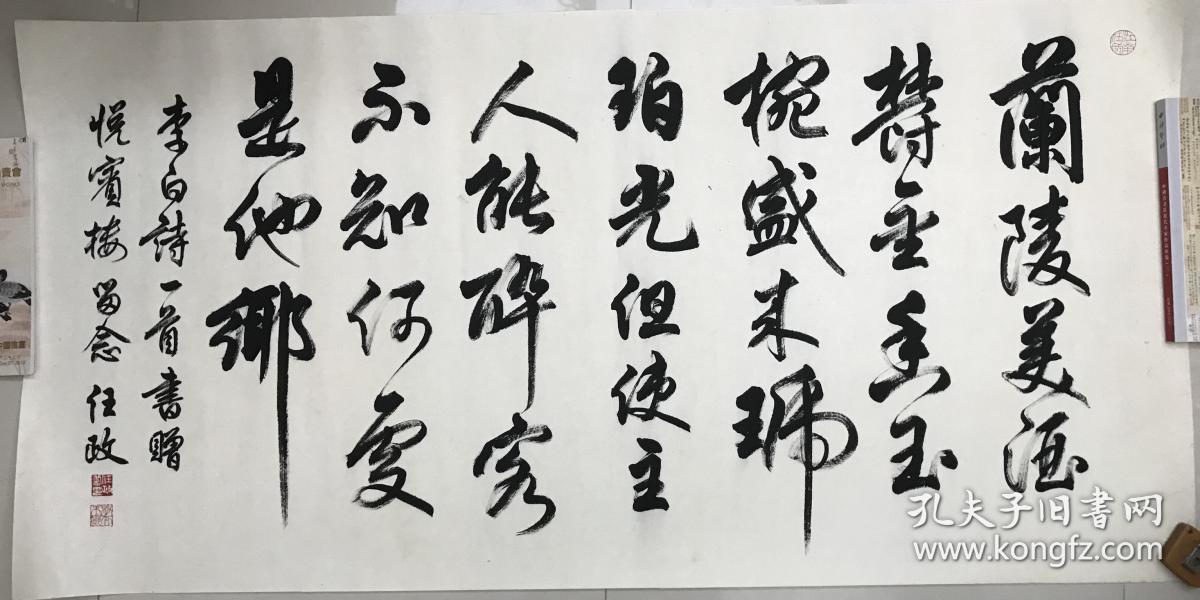 蘭陵美酒
鬱金香玉
椀盛来琥
珀光但使主
人能醉客
不知何處
是他鄉
李白詩一首書贈
悦賓楼留念 任政
孔夫子旧书网
www.kongfz.com